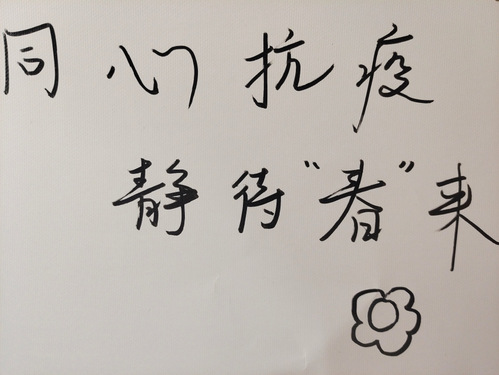 同心抗疫
静待“春”来